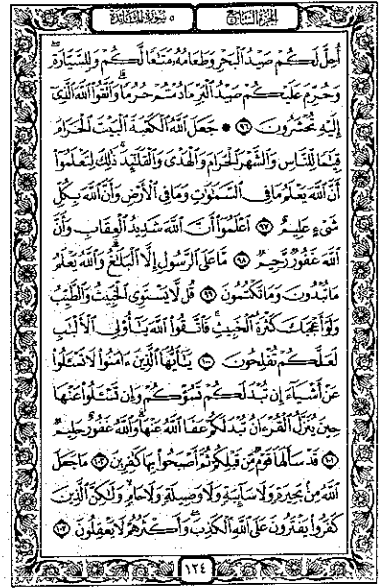 الجزء السابع ٥ سورة المائدة
أُحِلَّ لَكُمْ صَيْدُ ٱلْبَحْرِ وَطَعَامُهُۥ مَتَٰعًا لَّكُمْ وَلِلسَّيَّارَةِ ۖ
وَحُرِّمَ عَلَيْكُمْ صَيْدُ ٱلْبَرِّ مَا دُمْتُمْ حُرُمًا ۗ وَٱتَّقُوا۟ ٱللَّهَ ٱلَّذِىٓ
إِلَيْهِ تُحْشَرُونَ ٩٦ ۞ جَعَلَ ٱللَّهُ ٱلْكَعْبَةَ ٱلْبَيْتَ ٱلْحَرَامَ
قِيَٰمًا لِّلنَّاسِ وَٱلشَّهْرَ ٱلْحَرَامَ وَٱلْهَدْىَ وَٱلْقَلَٰٓئِدَ ۚ ذَٰلِكَ لِتَعْلَمُوٓا۟
أَنَّ ٱللَّهَ يَعْلَمُ مَا فِى ٱلسَّمَٰوَٰتِ وَمَا فِى ٱلْأَرْضِ وَأَنَّ ٱللَّهَ بِكُلِّ
شَىْءٍ عَلِيمٌ ٩٧ ٱعْلَمُوٓا۟ أَنَّ ٱللَّهَ شَدِيدُ ٱلْعِقَابِ وَأَنَّ
ٱللَّهَ غَفُورٌ رَّحِيمٌ ٩٨ مَّا عَلَى ٱلرَّسُولِ إِلَّا ٱلْبَلَٰغُ ۗ وَٱللَّهُ يَعْلَمُ
مَا تُبْدُونَ وَمَا تَكْتُمُونَ ٩٩ قُل لَّا يَسْتَوِى ٱلْخَبِيثُ وَٱلطَّيِّبُ
وَلَوْ أَعْجَبَكَ كَثْرَةُ ٱلْخَبِيثِ ۚ فَٱتَّقُوا۟ ٱللَّهَ يَٰٓأُو۟لِى ٱلْأَلْبَٰبِ
لَعَلَّكُمْ تُفْلِحُونَ ١٠٠ يَٰٓأَيُّهَا ٱلَّذِينَ ءَامَنُوا۟ لَا تَسْـَٔلُوا۟
عَنْ أَشْيَآءَ إِن تُبْدَ لَكُمْ تَسُؤْكُمْ وَإِن تَسْـَٔلُوا۟ عَنْهَا
حِينَ يُنَزَّلُ ٱلْقُرْءَانُ تُبْدَ لَكُمْ عَفَا ٱللَّهُ عَنْهَا ۗ وَٱللَّهُ غَفُورٌ حَلِيمٌ
١٠١ قَدْ سَأَلَهَا قَوْمٌ مِّن قَبْلِكُمْ ثُمَّ أَصْبَحُوا۟ بِهَا كَٰفِرِينَ ١٠٢ مَا جَعَلَ
ٱللَّهُ مِنۢ بَحِيرَةٍ وَلَا سَآئِبَةٍ وَلَا وَصِيلَةٍ وَلَا حَامٍ ۙ وَلَٰكِنَّ ٱلَّذِينَ
كَفَرُوا۟ يَفْتَرُونَ عَلَى ٱللَّهِ ٱلْكَذِبَ ۖ وَأَكْثَرُهُمْ لَا يَعْقِلُونَ ١٠٣
١٢٤